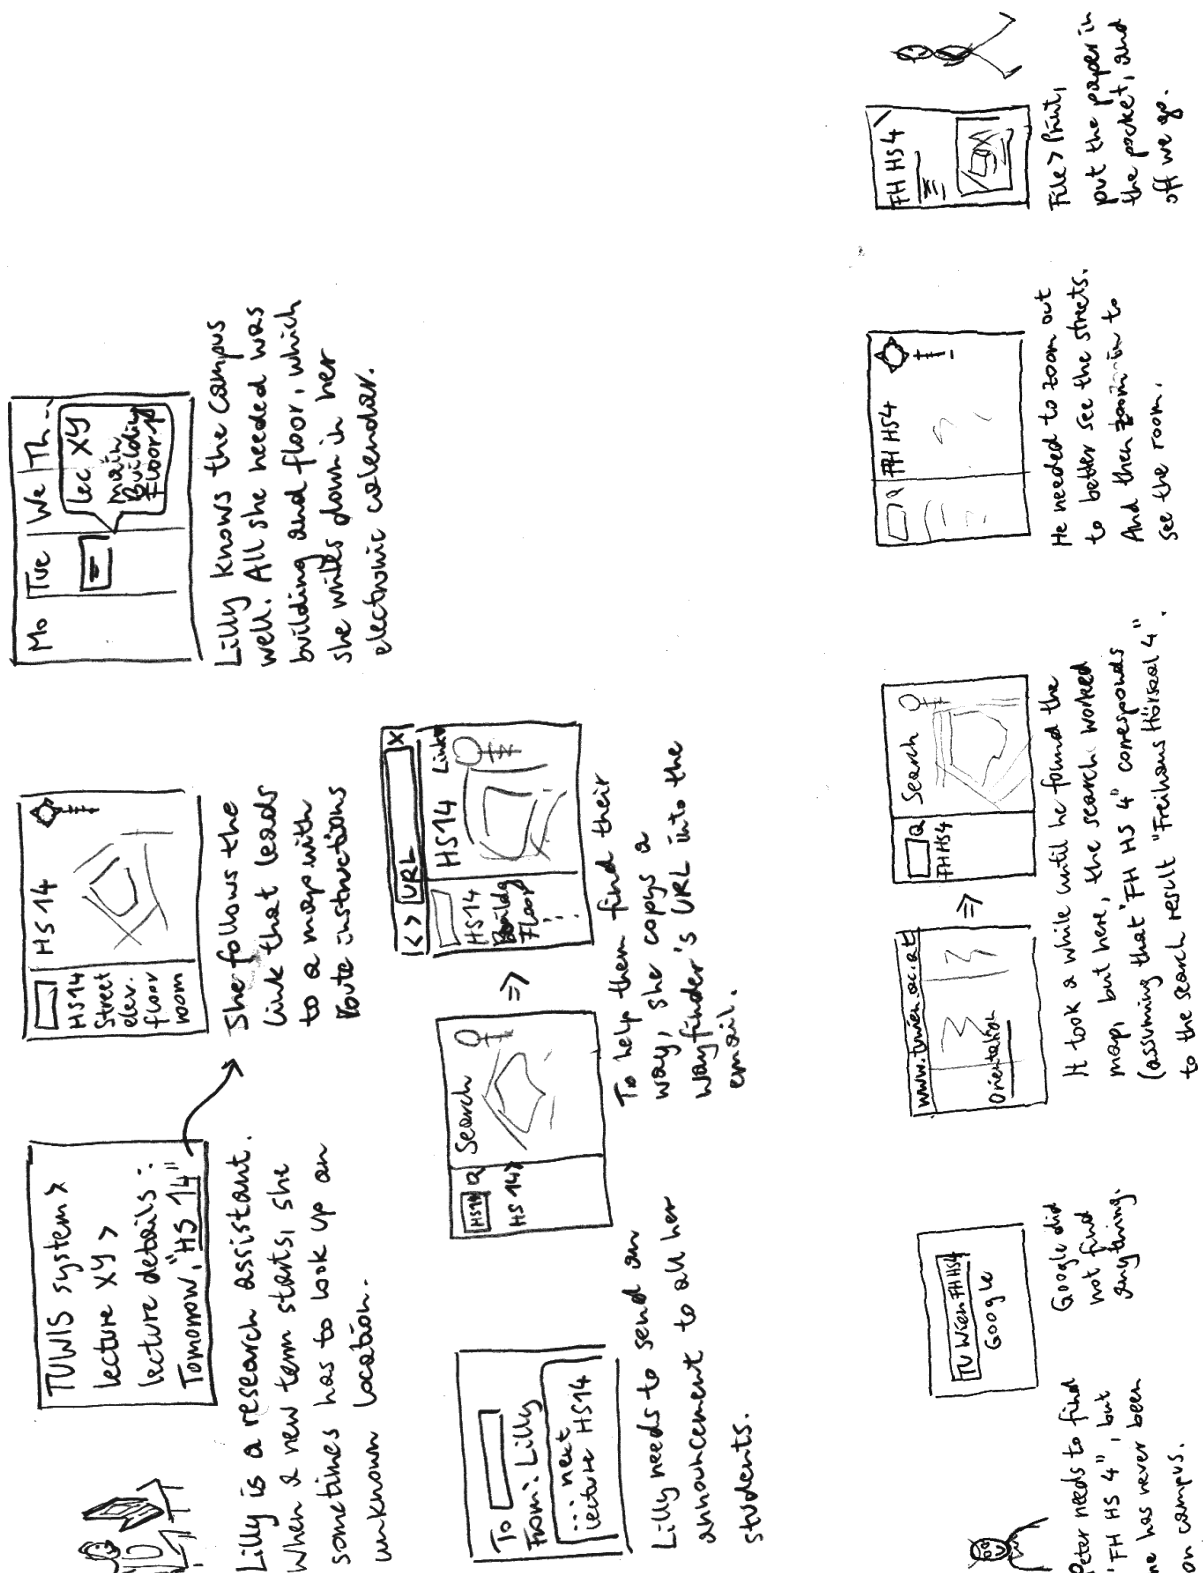 TUWIS system >
lecture XY >
lecture details:
Tomorrow, "HS 14"
Lilly is a research assistant.
When a new term starts, she
sometimes has to look up an
unknown location.
HS 14
HS14
Street
elev.
floor
room
She follows the
link that leads
to a map with
route instructions
Mo Tue We Th...
Lec XY
main
Building
Floor
Lilly knows the campus
well. All she needed was
building and floor, which
she writes down in her
electronic calendar.
To
From: Lilly
... next
lecture HS14
Lilly needs to send an
announcement to all her
students.
HS14 Q Search
HS 14>
=>
< > URL X
HS14 Link
HS14
Buildg
Floor
To help them find their
way, she copys a
wayfinder's URL into the
email.
Peter needs to find
"FH HS 4", but
he has never been
on campus.
TU Wien FH HS4
Google
Google did
not find
anything.
www.tuwien.ac.at
Orientation
=>
Q Search
FH HS4
It took a while until he found the
map, but here, the search worked
(assuming that "FH HS 4" corresponds
to the search result "Freihaus Hörsaal 4".
FH HS4
He needed to zoom out
to better see the streets.
And then zoom in to
see the room.
FH HS4
File > Print,
put the paper in
the pocket, and
off we go.